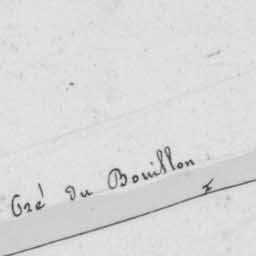 Gré du Bouillon